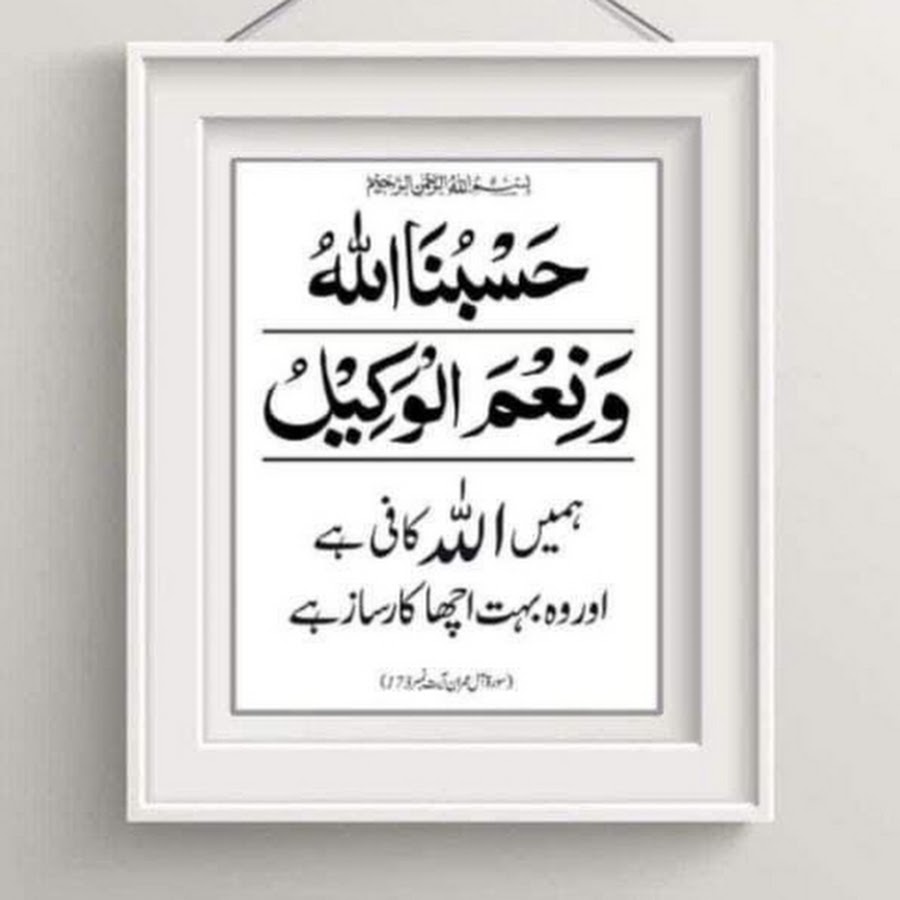 بسم الله الرحمن الرحيم
حَسْبُنَا اللهُ
وَنِعْمَ الْوَكِيْلُ
ہمیں اللہ کافی ہے
اور وہ بہت اچھا کارساز ہے
(سورۃ آل عمران آیت نمبر 173)